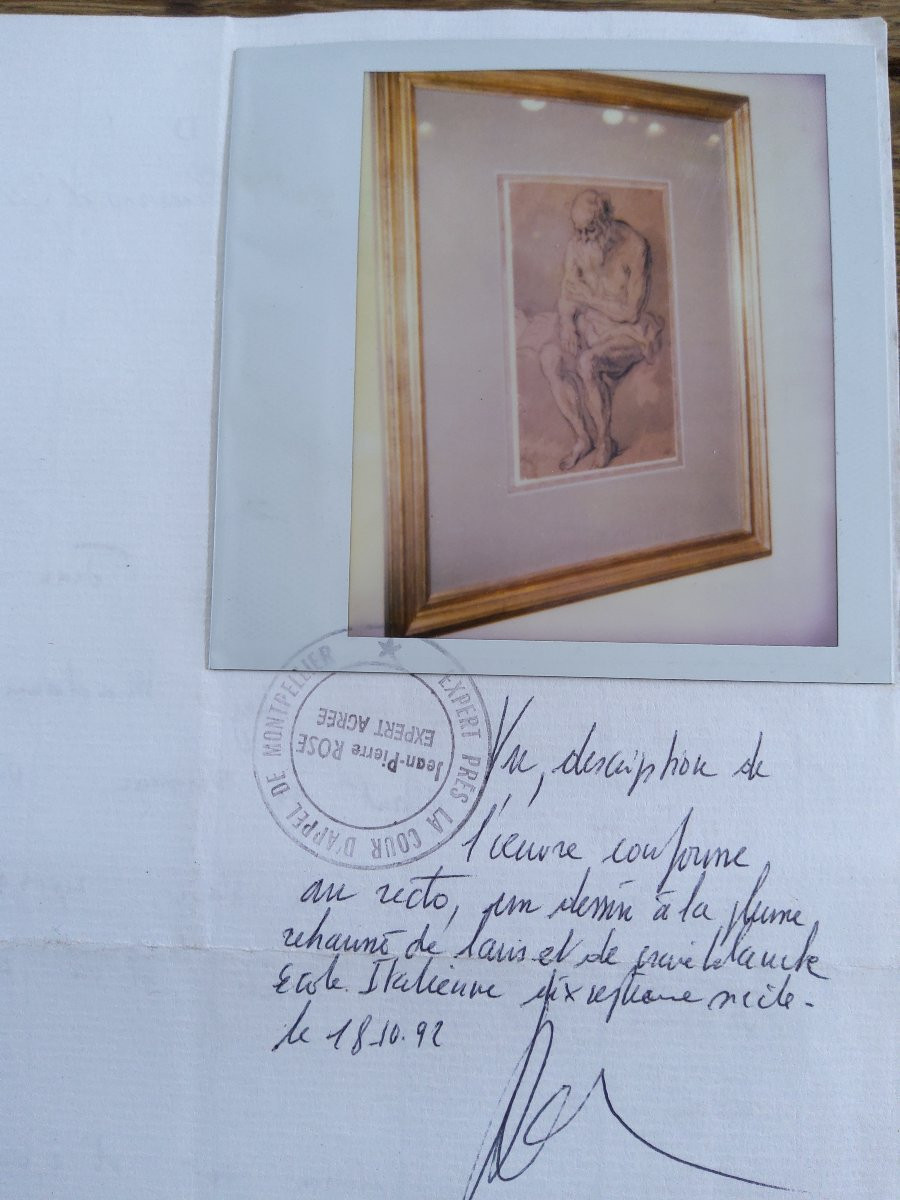 EXPERT PRÈS LA COUR D'APPEL DE MONTPELLIER ★
Jean-Pierre ROSE
EXPERT AGRÉÉ
Vu, description de
l'œuvre conforme
au recto, un dessin à la plume
rehaussé de lavis et de craie blanche
Ecole Italienne dix septième siècle.
le 18.10.92